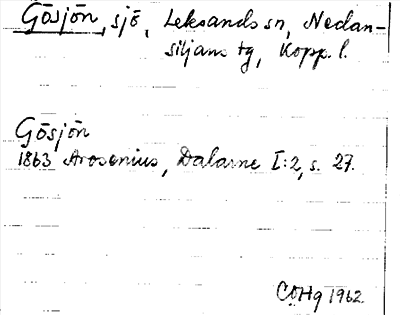 Gösjön, sjö, Leksands sn, Nedan-
siljans tg, Kopp. l.
Gösjön
1863 Arosenius, Dalarne I:2, s. 27.
CÖHg 1962